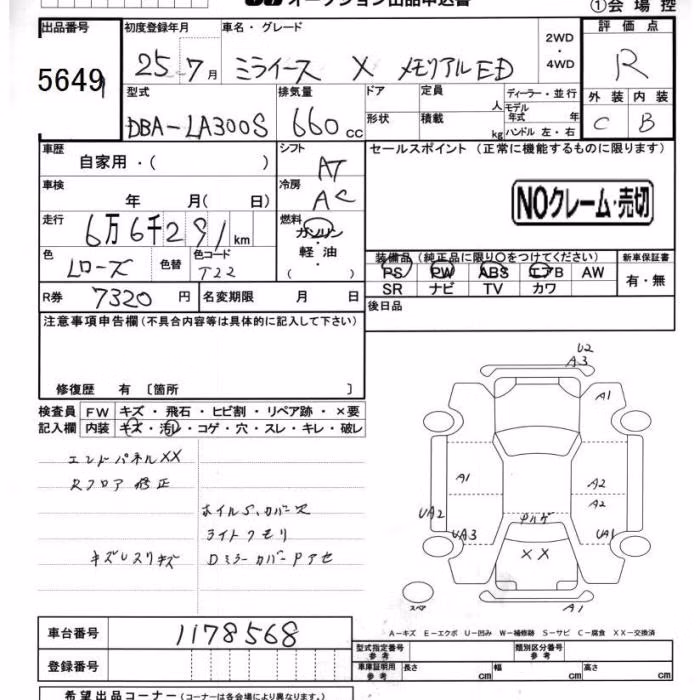 オークション出品申込書
①会場控
出品番号
5649
初度登録年月
25-7月
車名・グレード
ミライース X メモリアルED
2WD
・
4WD
評価点
R
外装 内装
C B
型式
DBA-LA300S
排気量
660 cc
ドア
定員 人
形状
積載 kg
ディーラー・並行
モデル年式 年
ハンドル 左・右
車歴
自家用・( )
シフト
AT
車検
年 月( 日)
冷房
AC
走行
6万6千291km
燃料
ガソリン・軽油
( )
セールスポイント (正常に機能するものに限ります)
NOクレーム・売切
色
Lローズ
色替
色コード
T22
装備品(純正品に限り○をつけてください)
PS PW ABS エアB AW
SR ナビ TV カワ
新車保証書
有・無
R券 7320 円
名変期限 月 日
後日品
注意事項申告欄(不具合内容等は具体的に記入して下さい)
修復歴 有 〔箇所 〕
検査員記入欄
FW キズ・飛石・ヒビ割・リペア跡・×要
内装 キズ・汚レ・コゲ・穴・スレ・キレ・破レ
エンドパネルXX
Rフロア 修正
ホイルS,カバーズ
ライトクモリ
キズUスリキズ
DミラーカバーPアセ
U2
A3
A1
A1
A2
A2
UA2
UA3
UA1
XX
A1
スペア
A-キズ E-エクボ U-凹み W-補修跡 S-サビ C-腐食 XX-交換済
車台番号
1178568
登録番号
型式指定番号 参考
類別区分番号 参考
車庫証明用 参考
長さ cm
幅 cm
高さ cm
希望出品コーナー(コーナーは各会場により異なります。)